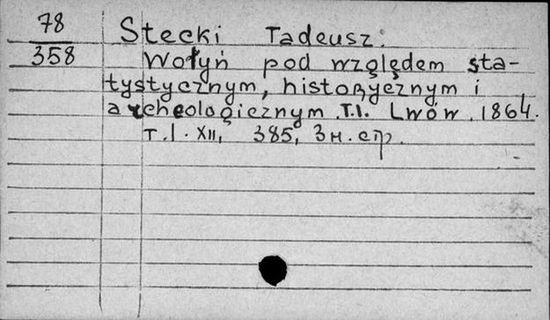 78 Stecki Tadeusz.
358 Wołyń pod względem sta-
tystycznym, historycznym i
archeologicznym. T.I. Lwów. 1864.
т. I. XII, 385, 3 н. стр.